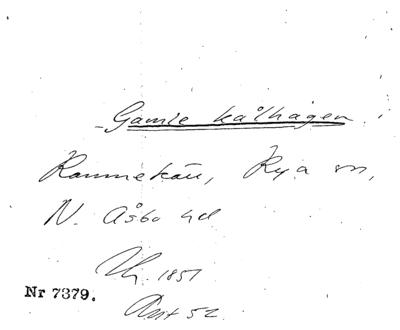 Gamle kålhagen.
Rammekärr, Rya sn,
N. Åsbo hd
1851
Nr 7379.
52